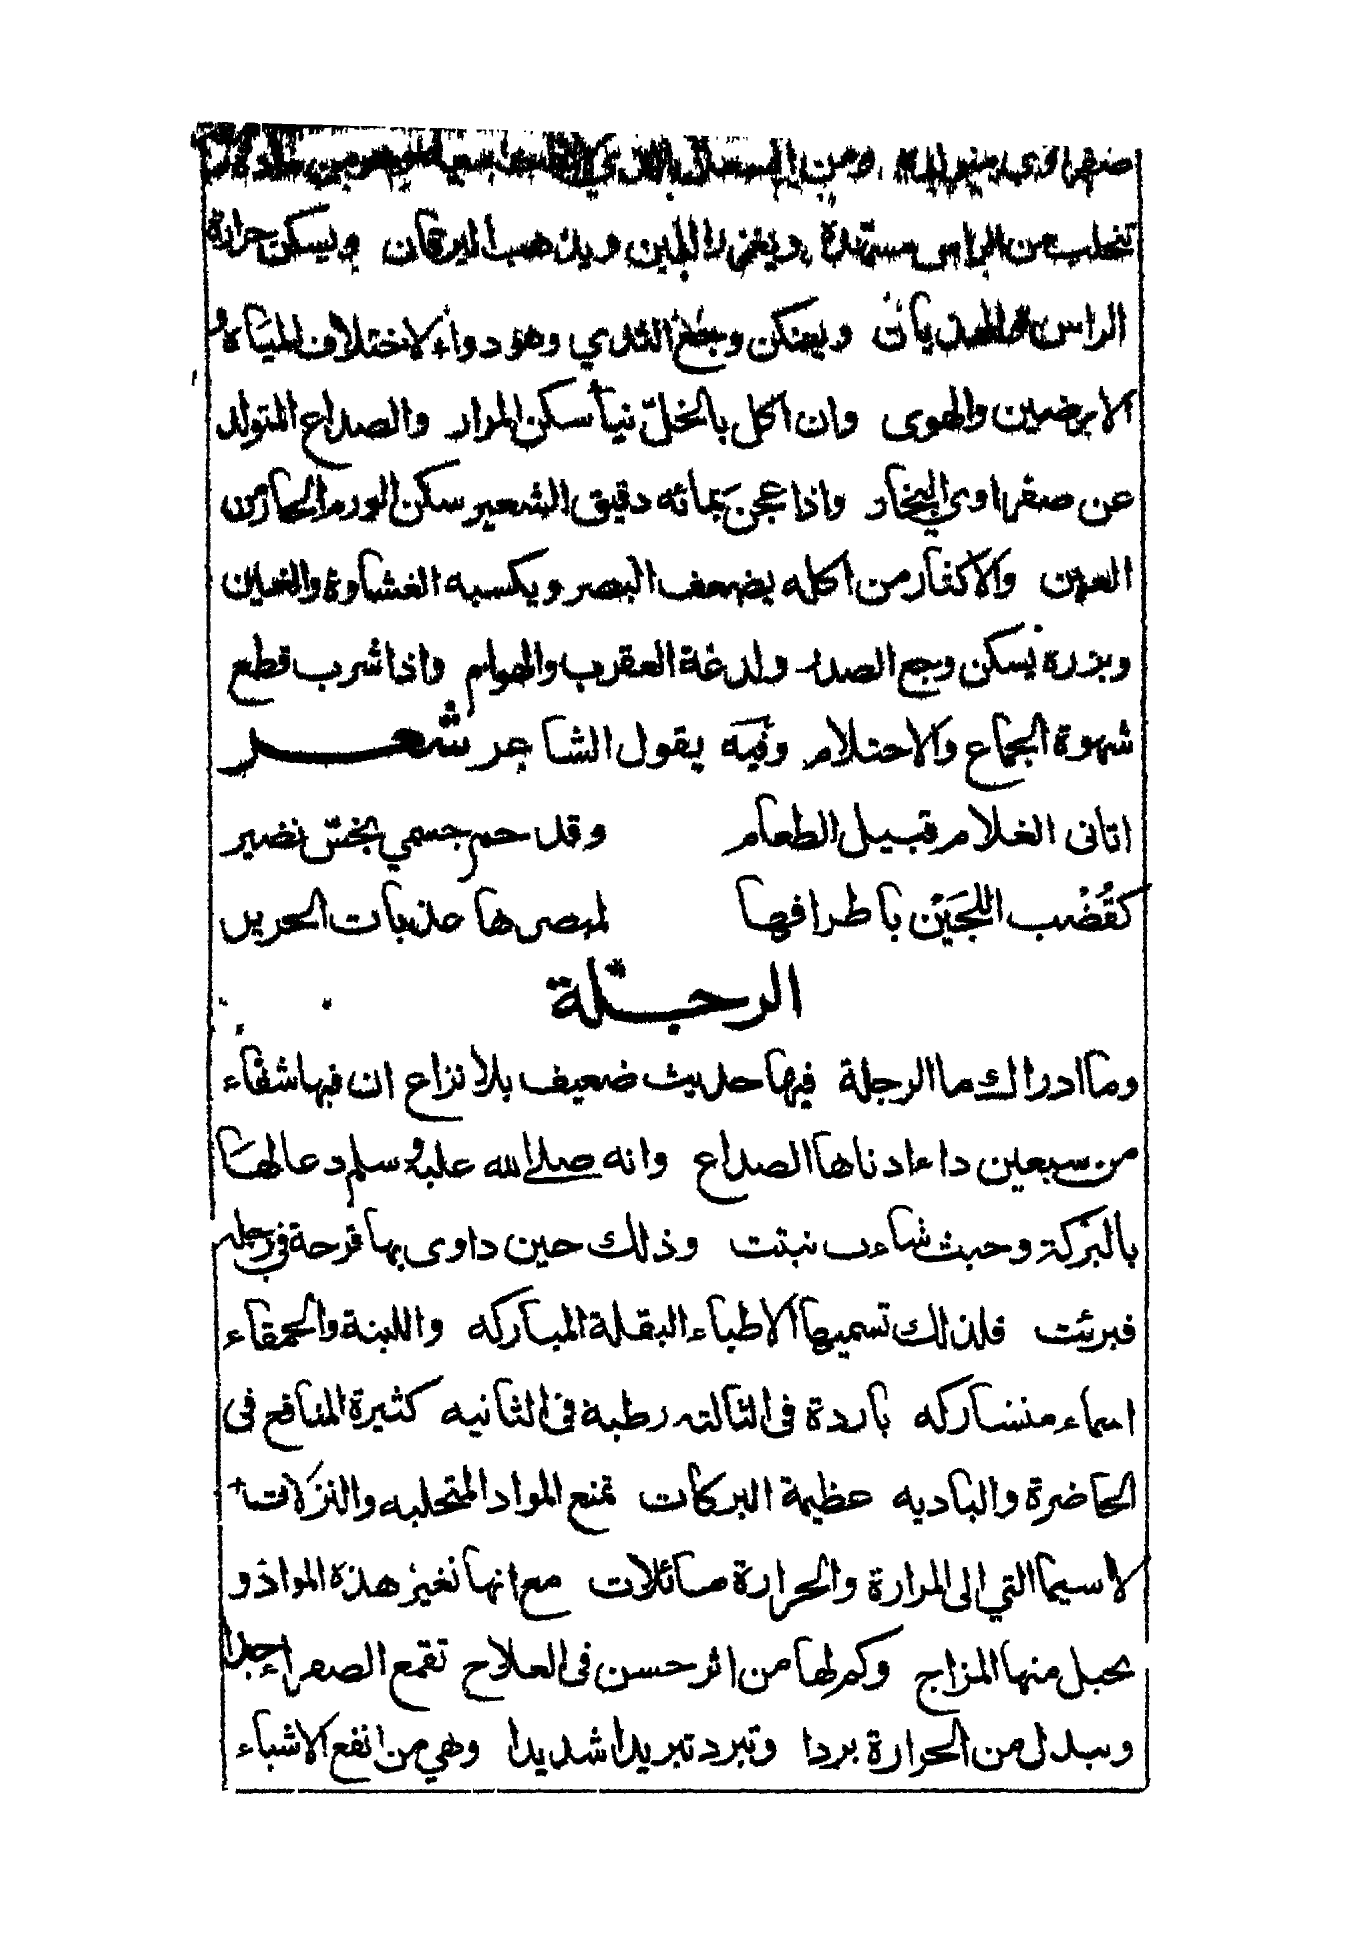 صفراوى ومن
تتحلب من الراس مستمدة ويغزر اللبن ويذهب اليرقان ويسكن حرارة
الراس والهذيان ويسكن وجع الثدي وهو دواء لاختلاف المياه و
الارضين والهوى وان اكل بالخل نيأ سكن المرار والصداع المتولد
عن صفراوي البخار واذا عجن بمائه دقيق الشعير سكن الورم الحار من
العين والاكثار من اكله يضعف البصر ويكسبه الغشاوة والغين
وبزره يسكن وجع الصدر ولدغة العقرب والهوام واذا شرب قطع
شهوة الجماع والاحتلام وفيه يقول الشاعر شعر
اتانى الغلام قبيل الطعام وقد حم جسمي بخس نضير
كقُضُب اللجَيْن باطرافها لمبصرها عذبات الحرير
الرجلة
وما ادراك ما الرجلة فيها حديث ضعيف بلا نزاع ان فيها شفاء
من سبعين داء ادناها الصداع وانه صلى الله عليه وسلم دعا لها
بالبركة وحيث شاءت نبتت وذلك حين داوى بها قرحة في رجله
فبرئت فلذلك تسميها الاطباء البقلة المباركه واللينة والحمقاء
اسماء متشاركه باردة فى الثالثه رطبة فى الثانيه كثيرة المنافع فى
الحاضرة والباديه عظيمة البركات تمنع المواد المتحلبه والنزلات
لاسيما التي الى المرارة والحرارة مائلات مع انها تغير هذه المواد و
يحيل منها المزاج وكم لها من اثر حسن فى العلاج تقمع الصفراء جدا
ويبدل من الحرارة بردا وتبرد تبريدا شديدا وهي من انفع الاشياء